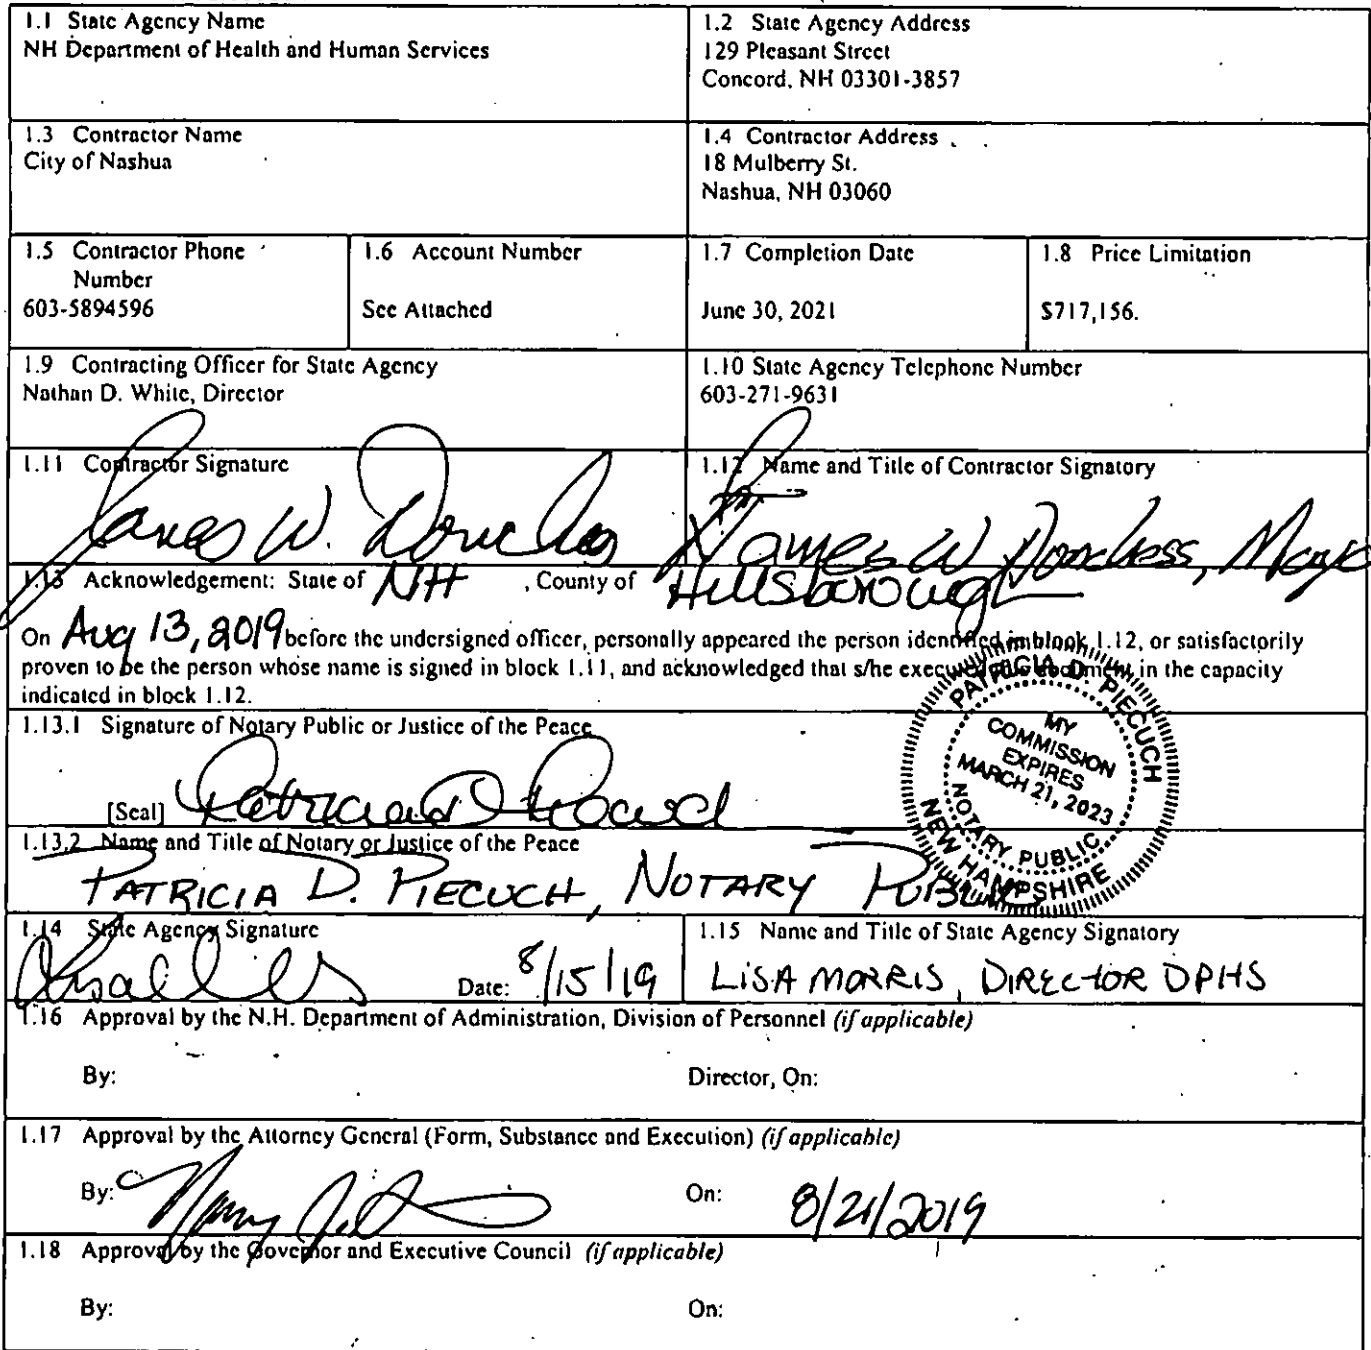 1.1 State Agency Name
NH Department of Health and Human Services
1.2 State Agency Address
129 Pleasant Street
Concord, NH 03301-3857
1.3 Contractor Name
City of Nashua
1.4 Contractor Address
18 Mulberry St.
Nashua, NH 03060
1.5 Contractor Phone
Number
603-5894596
1.6 Account Number
See Attached
1.7 Completion Date
June 30, 2021
1.8 Price Limitation
$717,156.
1.9 Contracting Officer for State Agency
Nathan D. White, Director
1.10 State Agency Telephone Number
603-271-9631
1.11 Contractor Signature
James W. Donchess
1.12 Name and Title of Contractor Signatory
James W Donchess, Mayo
1.13 Acknowledgement: State of NH , County of Hillsborough
On Aug 13, 2019 before the undersigned officer, personally appeared the person identified in block 1.12, or satisfactorily
proven to be the person whose name is signed in block 1.11, and acknowledged that s/he executed this document in the capacity
indicated in block 1.12.
1.13.1 Signature of Notary Public or Justice of the Peace
[Seal] Patricia D Piecuch
PATRICIA D. PIECUCH
MY
COMMISSION
EXPIRES
MARCH 21, 2023
NOTARY PUBLIC
NEW HAMPSHIRE
1.13.2 Name and Title of Notary or Justice of the Peace
PATRICIA D. PIECUCH, NOTARY PUBLIC
1.14 State Agency Signature
Date: 8/15/19
1.15 Name and Title of State Agency Signatory
LISA MORRIS, DIRECTOR DPHS
1.16 Approval by the N.H. Department of Administration, Division of Personnel (if applicable)
By: Director, On:
1.17 Approval by the Attorney General (Form, Substance and Execution) (if applicable)
By: On: 8/21/2019
1.18 Approval by the Governor and Executive Council (if applicable)
By: On: